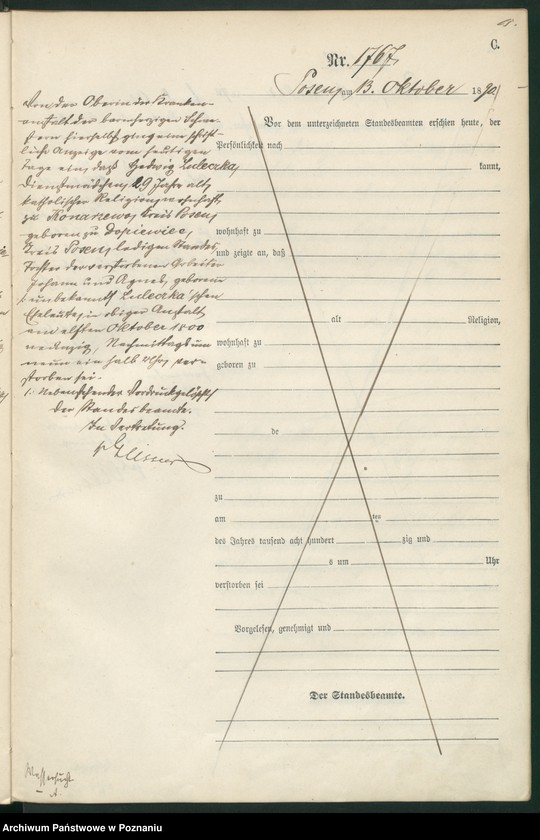 C.
Nr. 1767
Posen, am 13. Oktober 1890
Von der Oberin der Kranken-
anstalt der barmherzigen Schwe-
stern hierselbst ging eine schrift-
liche Anzeige vom heutigen
Tage ein, daß Hedwig Luleczka,
Dienstmädchen, 29 Jahre alt,
katholischer Religion, wohnhaft
zu Konarzewo, Kreis Posen,
geboren zu Dopiewiec,
Kreis Posen, ledigen Standes,
Tochter der verstorbenen Arbeiter
Johann und Agnes, geborene
unbekannt, Luleczka'schen
Eheleute, in obiger Anstalt
am elften Oktober 1800
neunzig, Nachmittags um
neun ein halb Uhr, ver-
storben sei.
1. Nebenstehender Vordruck gelöscht
Der Standesbeamte.
In Vertretung.
Vor dem unterzeichneten Standesbeamten erschien heute, der
Persönlichkeit nach
kannt,
wohnhaft zu
und zeigte an, daß
alt Religion,
wohnhaft zu
geboren zu
de
zu
am ten
des Jahres tausend acht hundert zig und
s um Uhr
verstorben sei
Vorgelesen, genehmigt und
Der Standesbeamte.
Wassersucht
Archiwum Państwowe w Poznaniu